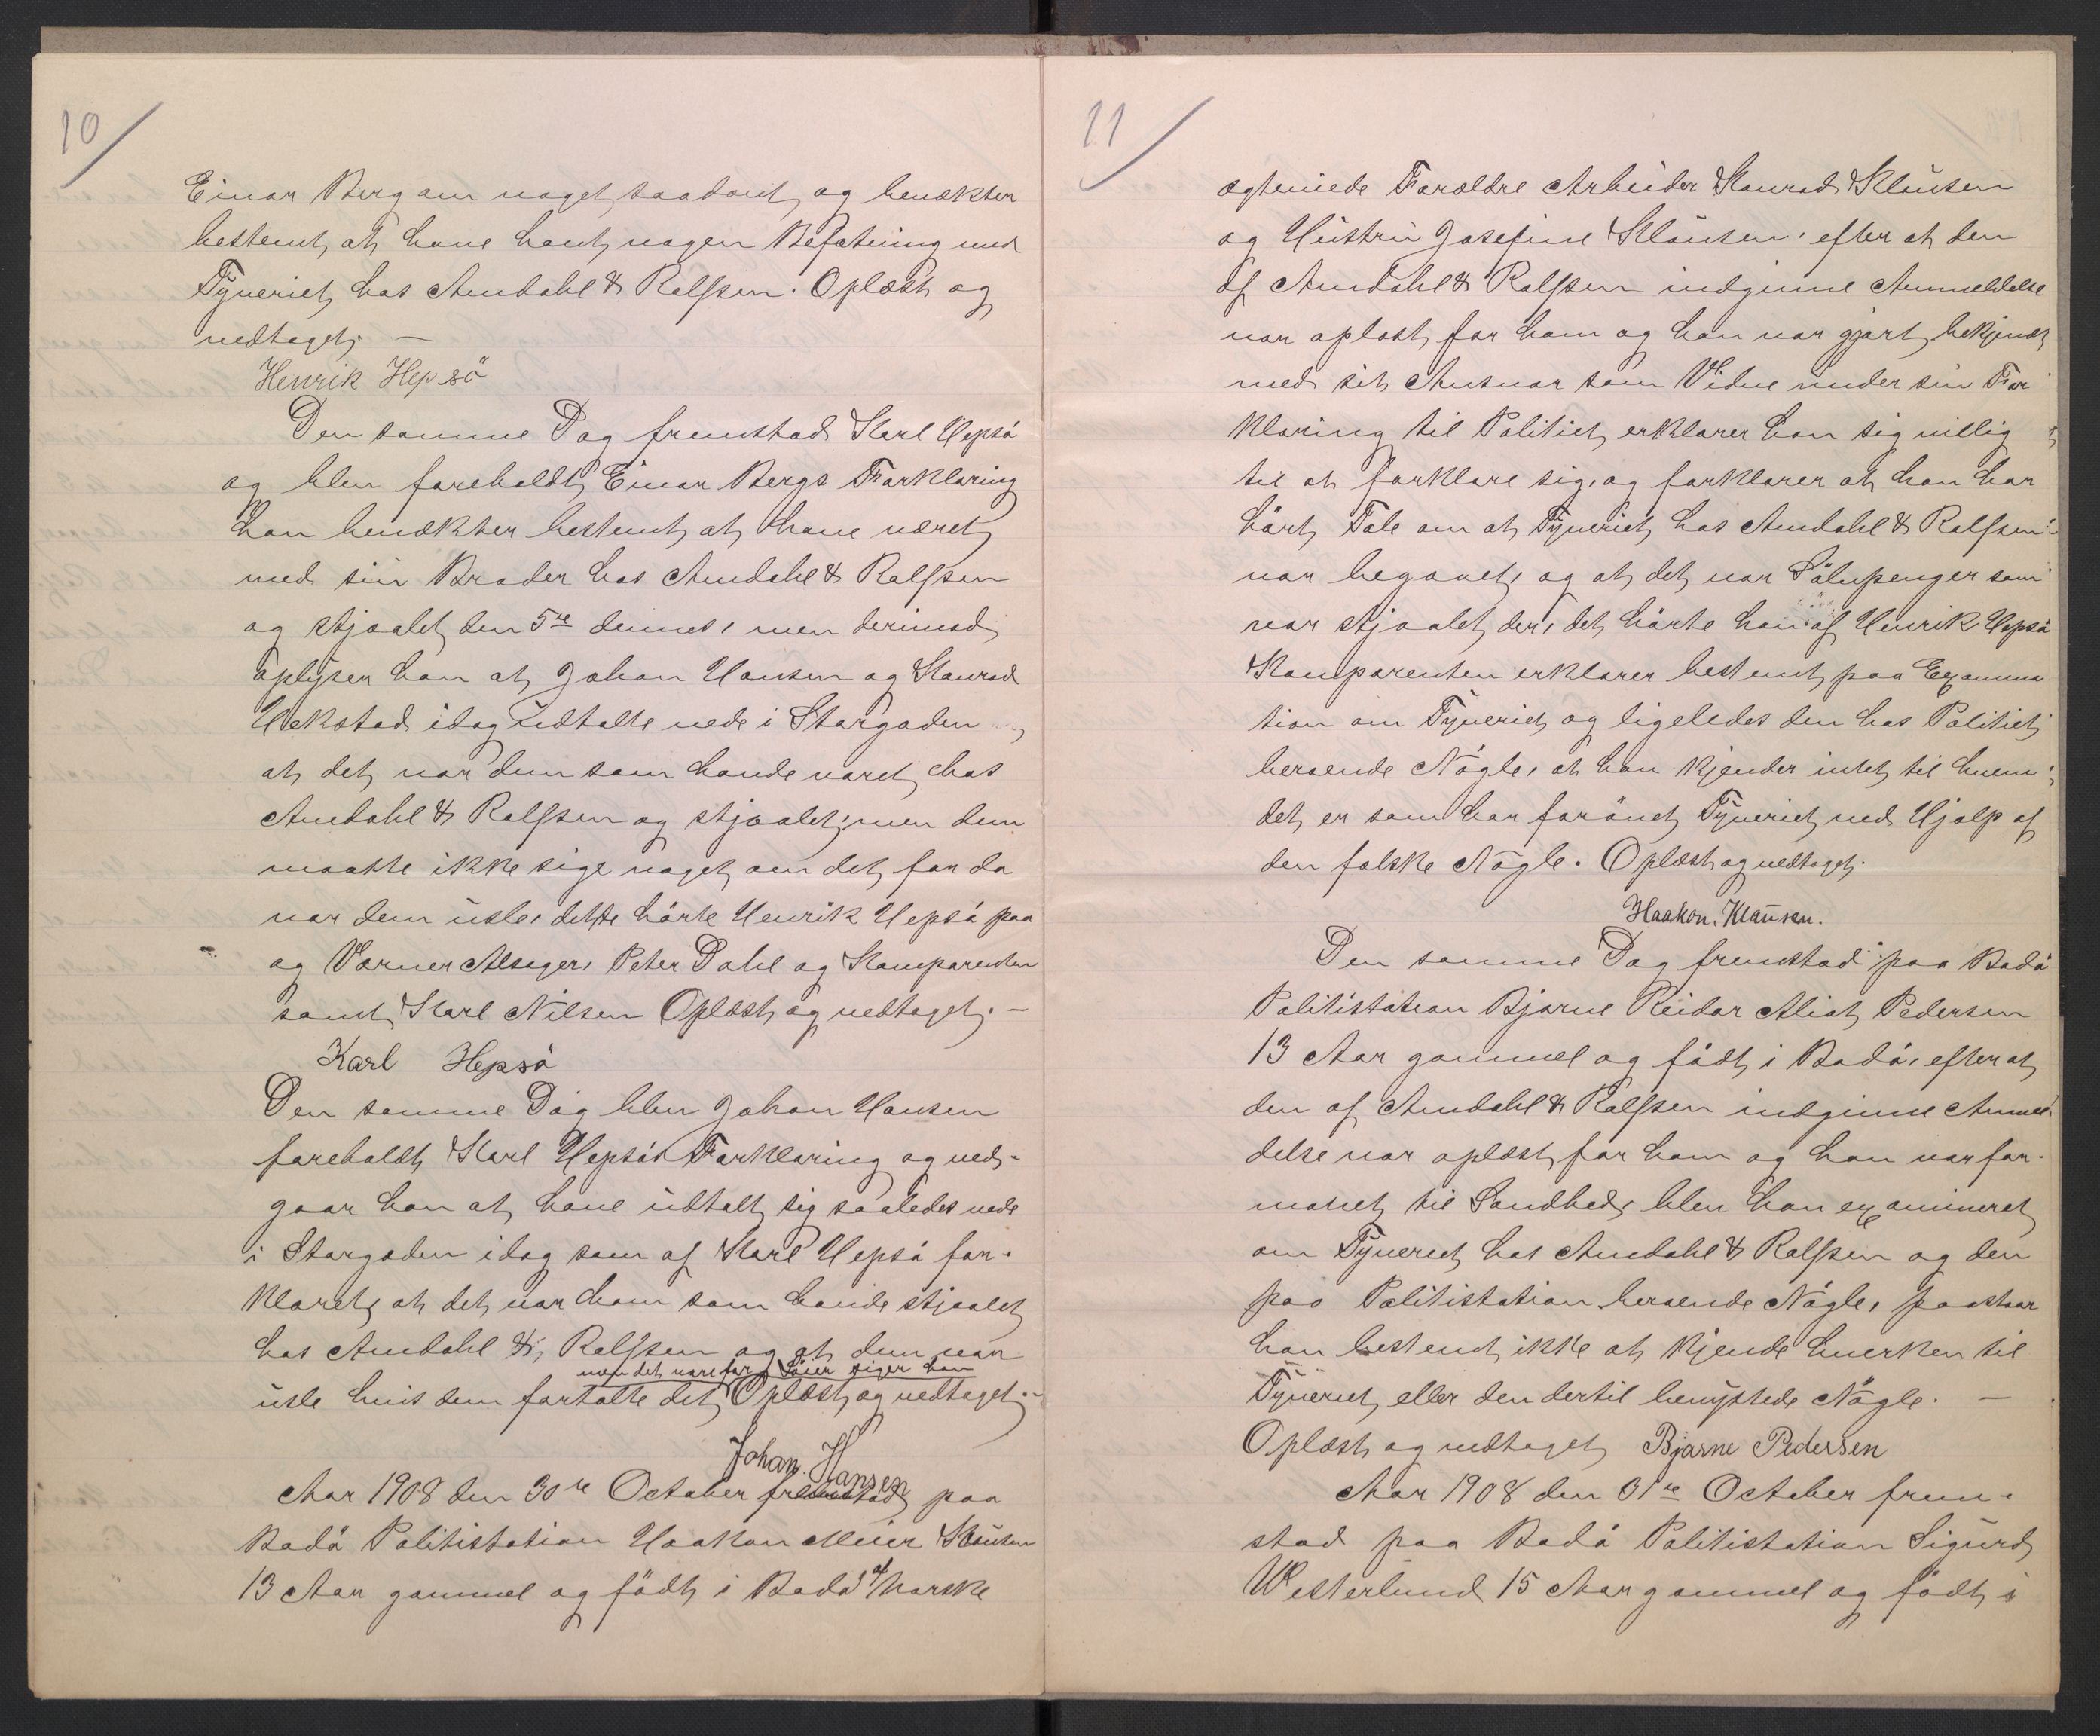 10/
Einar Berg om noget saadant, og benækter
bestemt at have havt nogen Befatning med
Tyveriet hos Amdahl & Rolfsen. Oplæst og
vedtaget. —
Henrik Hepsö
Den samme Dag fremstod Karl Hepsö
og blev foreholdt Einar Bergs Forklaring
han benækter bestemt at have været
med sin Broder hos Amdahl & Rolfsen
og stjaalet den 5te dennes, men derimod
oplyser han at Johan Hansen og Konrad
Hekstad idag udtalte nede i Storgaden
at det var dem som havde været hos
Amdahl & Rolfsen og stjaalet; men dem
maatte ikke sige noget om det, for da
var dem usle, dette hörte Henrik Hepsö paa
og Værner Alseger, Peter Dahl og Komparenten
samt Karl Nilsen Oplæst og vedtaget. —
Karl Hepsö
Den samme Dag blev Johan Hansen
foreholdt Karl Hepsös Forklaring og ved-
gaar han at have udtalt sig saaledes nede
i Storgaden idag som af Karl Hepsö for-
klaret, at det var ham som havde stjaalet
hos Amdahl & Rolfsen og at dem var
men det var for Löier siger han
usle hvis dem fortalte det, Oplæst og vedtaget. —
Johan. Hansen
Aar 1908 den 30te October fremstod paa
Bodö Politistation Haakon Meier Klausen
13 Aar gammel og födt i Bodö af Norske
11/
ægteviede Forældre Arbeider Konrad Klausen
og Hustru Josefine Klausen, efter at den
af Amdahl & Rolfsen indgivne Anmeldelse
var oplæst for ham og han var gjort bekjendt
med sit Ansvar som Vidne under sin For
klaring til Politiet, erklærer han sig villig
til at forklare sig, og forklarer at han har
hört Tale om at Tyveriet hos Amdahl & Rolfsen
var begaaet, og at det var Sölvpenger som
var stjaalet der, det hörte han af Henrik Hepsö
Komparenten erklærer bestemt paa Examina
tion om Tyveriet og ligeledes den hos Politiet
beroende Nögle, at han kjender intet til hvem
det er som har forövet Tyveriet ved Hjælp af
den falske Nögle. Oplæst og vedtaget.
Haakon. Klausen.
Den samme Dag fremstod paa Bodö
Politistation Bjarne Reidar Pedersen
13 Aar gammel og födt i Bodö, efter at
den af Amdahl & Rolfsen indgivne Anmel
delse var oplæst for ham og han var for-
manet til Sandhed, blev han examineret
om Tyveriet hos Amdahl & Rolfsen og den
paa Politistation beroende Nögle, paastaar
han bestemt ikke at kjende hverken til
Tyveriet eller den dertil benyttede Nögle. —
Oplæst og vedtaget Bjarne Pedersen
Aar 1908 den 31te October frem-
stod paa Bodö Politistation Sigurd
Westerlund 15 Aar gammel og födt i